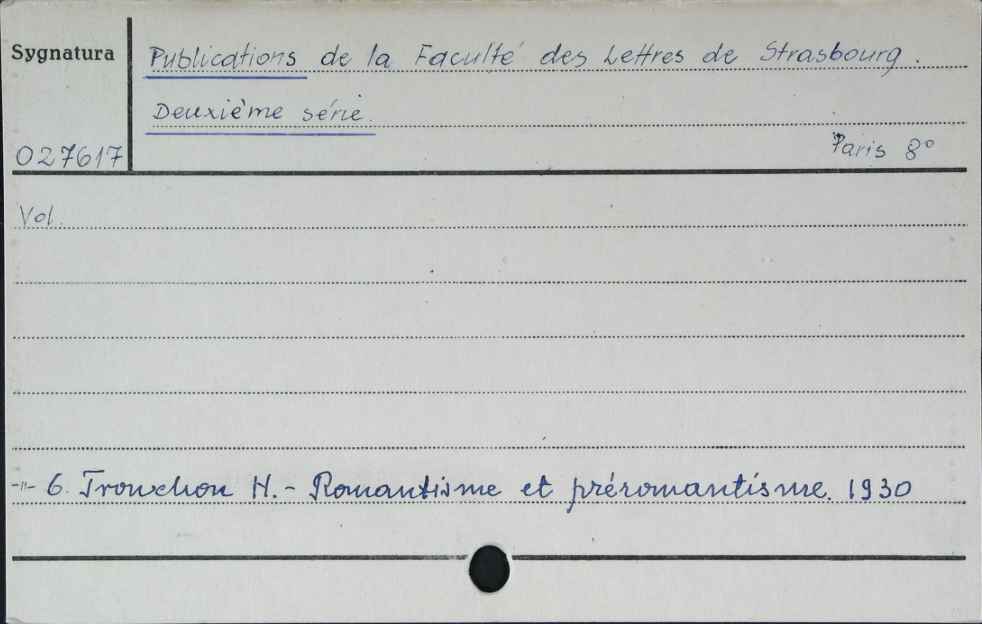 Sygnatura
Publications de la Faculté des Lettres de Strasbourg.
Deuxième série.
027617
Paris 8°
Vol.
-"- 6. Tronchon H. - Romantisme et préromantisme. 1930